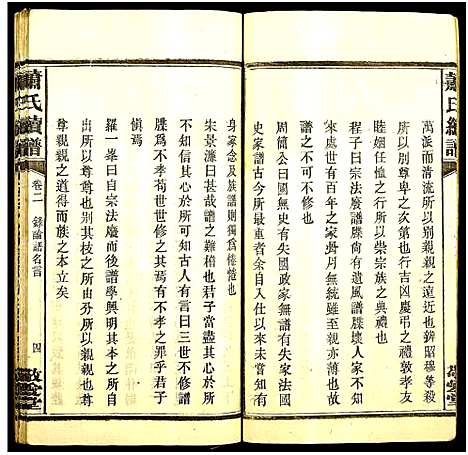 蕭氏續譜
萬派而清流所以別親親之遠近也辨昭穆等殺
所以別尊卑之次第也行吉凶慶弔之禮敦孝友
睦姻任恤之行所以崇宗族之典禮也
程子曰宗法廢譜牒尚有遺風譜牒壞人家不知
來處世有百年之家姆無統雖至親亦薄也
周蕳公曰國無史有失國政家無譜有失家法國
史家譜古今所最重者余自入仕以來所未敢去
譜之不可不修也
身家念及族譜則獨為惓惓也
朱景濂曰甚哉譜之難稽也君子當盡其
所可知闕其所不可知古人有言曰三世不修譜
牒為不孝苟世世修之其有不孝之罪乎君子
慎焉
羅一峯曰自宗法廢而後譜學興明其本之所自
出所以尊尊也別其支之所由分所以親親也尊
尊親親之道得而族之本立矣
蕭氏續譜
卷二
錄論譜名言
四
敬愛堂